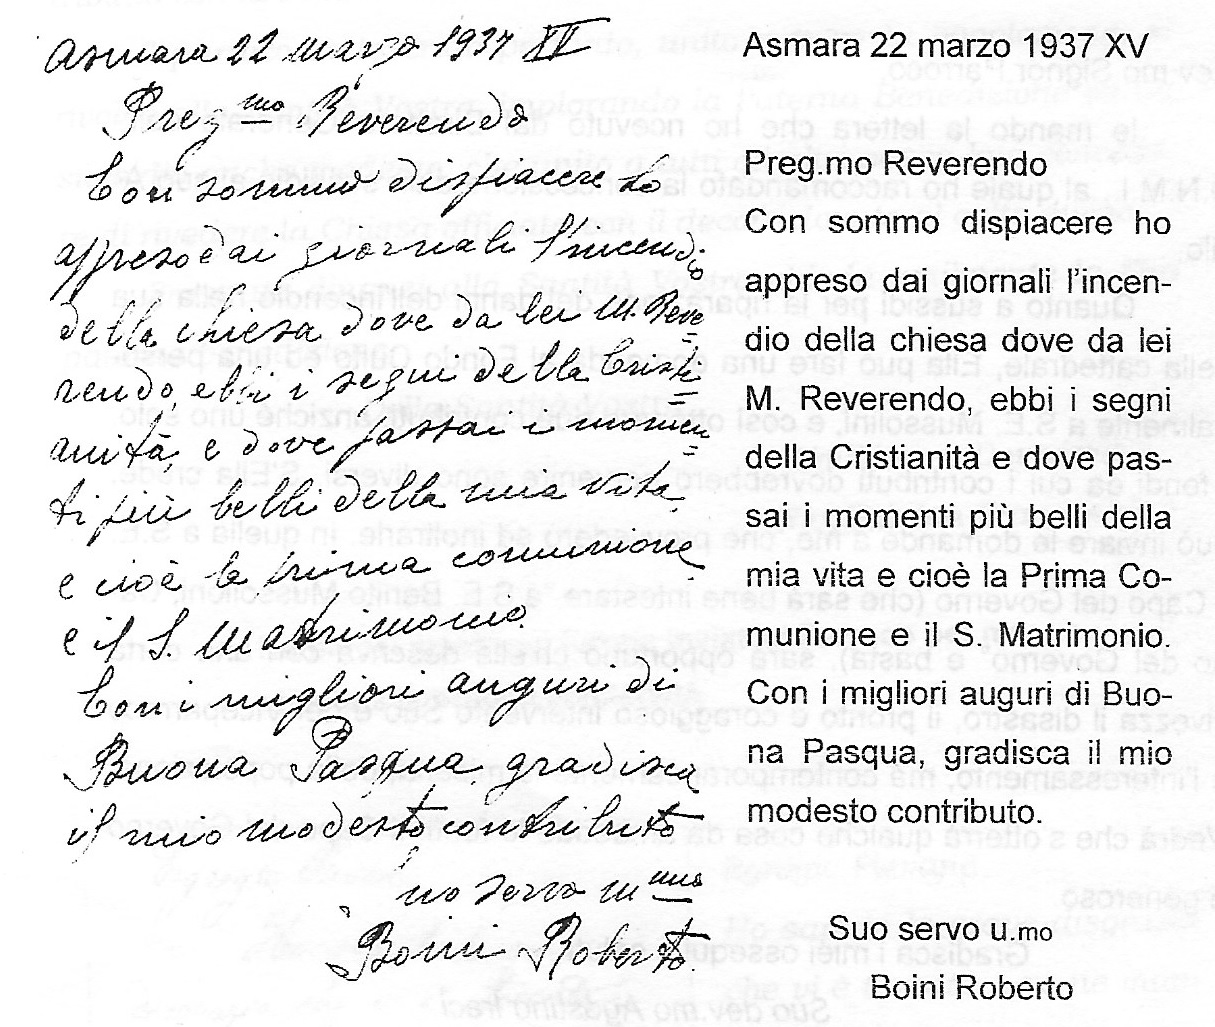 Asmara 22 Marzo 1937 XV
Preg mo Reverendo
Con sommo dispiacere ho
appreso dai giornali l'incendio
della chiesa dove da lei M. Reve=
rendo, ebbi i segni della Cristi=
anità, e dove passai i momen=
ti più belli della mia vita
e cioè la prima comunione
e il S. Matrimonio.
Con i migliori auguri di
Buona Pasqua, gradisca
il mio modesto contributo
suo servo u mo
Boini Roberto.
Asmara 22 marzo 1937 XV
Preg.mo Reverendo
Con sommo dispiacere ho
appreso dai giornali l'incen-
dio della chiesa dove da lei
M. Reverendo, ebbi i segni
della Cristianità e dove pas-
sai i momenti più belli della
mia vita e cioè la Prima Co-
munione e il S. Matrimonio.
Con i migliori auguri di Buo-
na Pasqua, gradisca il mio
modesto contributo.
Suo servo u.mo
Boini Roberto